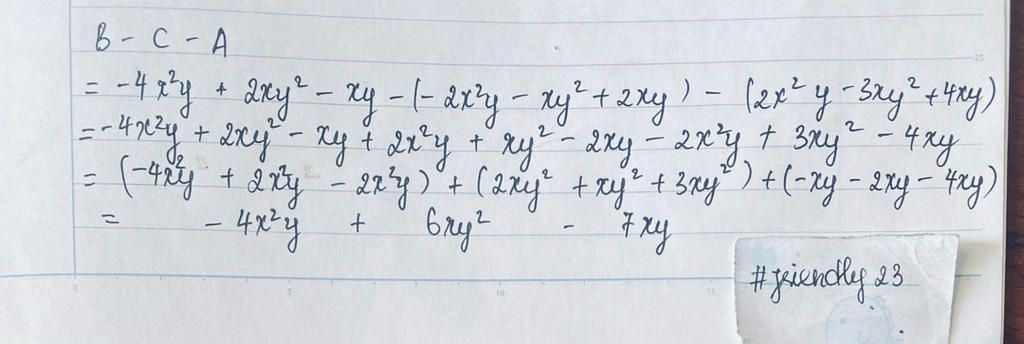 B - C - A
= -4x²y + 2xy² - xy - (-2x²y - xy² + 2xy) - (2x²y - 3xy² + 4xy)
= -4x²y + 2xy² - xy + 2x²y + xy² - 2xy - 2x²y + 3xy² - 4xy
= (-4x²y + 2x²y - 2x²y) + (2xy² + xy² + 3xy²) + (-xy - 2xy - 4xy)
= - 4x²y + 6xy² - 7xy
#friendly 23
0 5 10 15
25